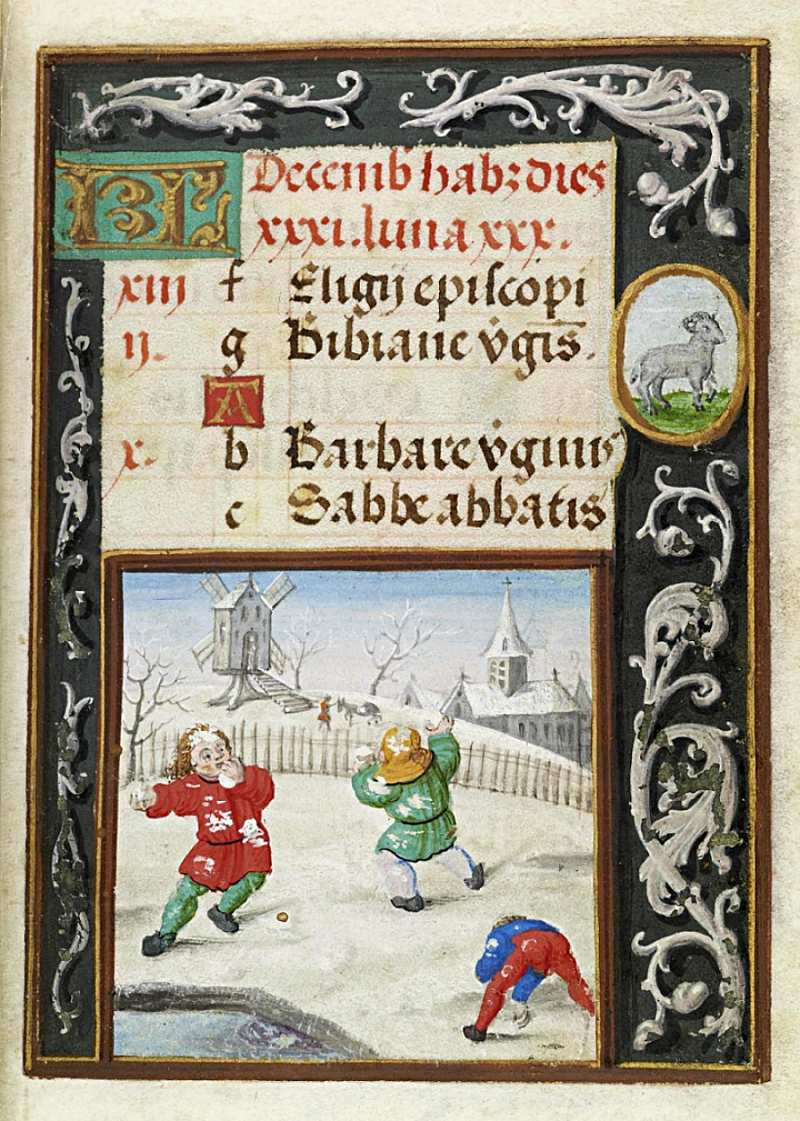 KL Decemb habz dies
xxxi. luna xxx.
xiii f Eligij episcopi
ij. g Bibiane vgis.
A
x. b Barbare vginis
c Sabbe abbatis